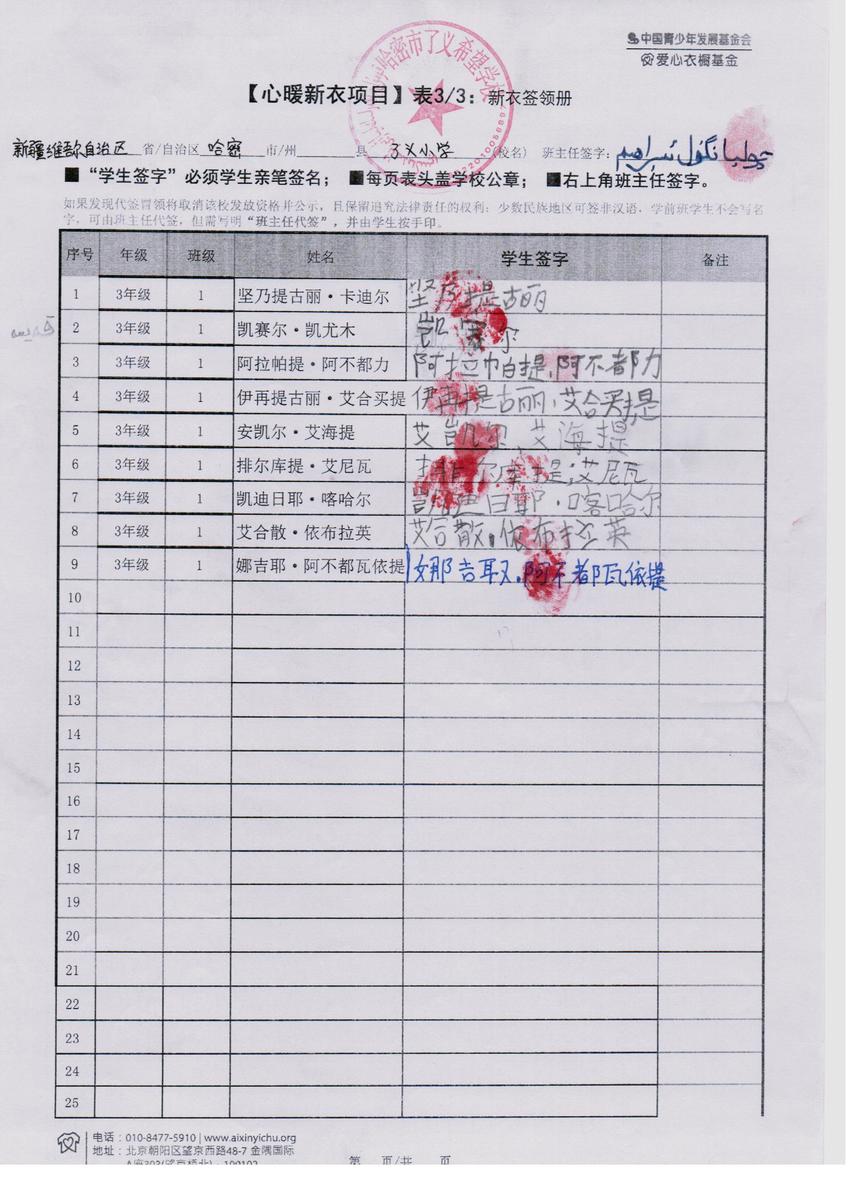 中国青少年发展基金会
爱心衣橱基金
哈密市了义希望学校
【心暖新衣项目】表3/3：新衣签领册
新疆维吾尔自治区 省/自治区 哈密 市/州 县 了义小学 (校名) 班主任签字：
■“学生签字”必须学生亲笔签名； ■每页表头盖学校公章； ■右上角班主任签字。
如果发现代签冒领将取消该校发放资格并公示，且保留追究法律责任的权利；少数民族地区可签非汉语，学前班学生不会写名
字，可由班主任代签，但需写明“班主任代签”，并由学生按手印。
序号 年级 班级 姓名 学生签字 备注
1 3年级 1 坚乃提古丽·卡迪尔 坚乃提古丽
2 3年级 1 凯赛尔·凯尤木 凯赛尔
3 3年级 1 阿拉帕提·阿不都力 阿拉帕提.阿不都力
4 3年级 1 伊再提古丽·艾合买提 伊再提古丽·艾合买提
5 3年级 1 安凯尔·艾海提 艾凯尔 艾海提
6 3年级 1 排尔库提·艾尼瓦 排尔库提·艾尼瓦
7 3年级 1 凯迪日耶·喀哈尔 凯迪日耶·喀哈尔
8 3年级 1 艾合散·依布拉英 艾合散·依布拉英
9 3年级 1 娜吉耶·阿不都瓦依提 娜吉耶.阿不都瓦依提
10
11
12
13
14
15
16
17
18
19
20
21
22
23
24
25
电话：010-8477-5910 | www.aixinyichu.org
地址：北京朝阳区望京西路48-7 金隅国际
第 页/共 页